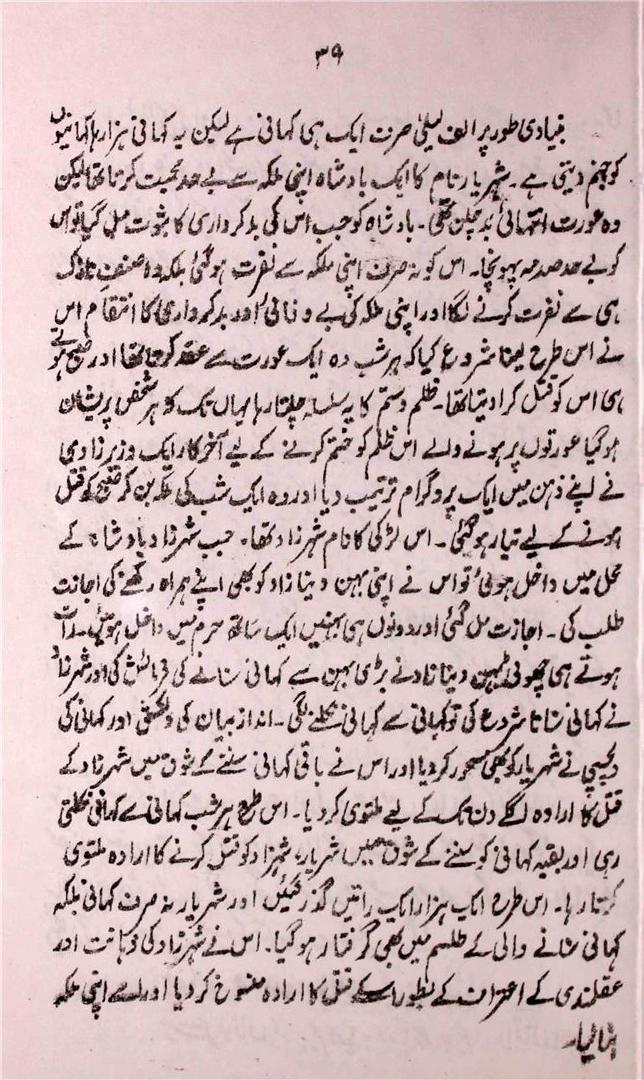 ۳۹
بنیادی طور پر الف لیلیٰ صرف ایک ہی کہانی ہے لیکن یہ کہانی ہزارہا کہانیوں
کو جنم دیتی ہے۔ شہریار نام کا ایک بادشاہ اپنی ملکہ سے بے حد محبت کرتا تھا لیکن
وہ عورت انتہائی بد چلن تھی۔ بادشاہ کو جب اس کی بد کرداری کا ثبوت ملی گیا تو اس
کو بے حد صدمہ پہونچا۔ اس کو نہ صرف اپنی ملکہ سے نفرت ہو گئی بلکہ وہ صنفِ نازک
ہی سے نفرت کرنے لگا اور اپنی ملکہ کی بے وفائی اور بد کرداری کا انتقام اس
نے اس طرح لینا شروع کیا کہ ہر شب وہ ایک عورت سے عقد کرتا تھا اور صبح ہوتے
ہی اس کو قتل کرا دیتا تھا۔ ظلم و ستم کا یہ سلسلہ چلتا رہا یہاں تک کہ ہر شخص پریشان
ہو گیا عورتوں پر ہونے والے اس ظلم کو ختم کرنے کے لیے آخر کار ایک وزیر زادی
نے اپنے ذہن میں ایک پروگرام ترتیب دیا اور وہ ایک شب کی ملکہ بن کر صبح کو قتل
ہونے کے لیے تیار ہو گئی۔ اس لڑکی کا نام شہر زاد تھا۔ جب شہر زاد بادشاہ کے
محل میں داخل ہوئی تو اس نے اپنی بہن دینا زاد کو بھی اپنے ہمراہ رکھنے کی اجازت
طلب کی۔ اجازت مل گئی اور دونوں ہی بہنیں ایک ساتھ حرم میں داخل ہوئیں۔ رات
ہوتے ہی چھوٹی بہن دینا زاد نے بڑی بہن سے کہانی سنانے کی فرمائش کی اور شہر زاد
نے کہانی سنانا شروع کی تو کہانی سے کہانی نکلنے لگی۔ انداز بیان کی دلکشی اور کہانی کی
دلچسپی نے شہریار کو بھی مسحور کر دیا اور اس نے باقی کہانی سننے کے شوق میں شہر زاد کے
قتل کا ارادہ اگلے دن تک کے لیے ملتوی کر دیا۔ اس طرح ہر شب کہانی سے کہانی نکلتی
رہی اور بقیہ کہانی کو سننے کے شوق میں شہریار، شہر زاد کو قتل کرنے کا ارادہ ملتوی
کرتا رہا۔ اس طرح ایک ہزار ایک راتیں گذر گئیں اور شہریار نہ صرف کہانی بلکہ
کہانی سنانے والی کے طلسم میں بھی گرفتار ہو گیا۔ اس نے شہر زاد کی ذہانت اور
عقلمندی کے اعتراف کے بطور اسکے قتل کا ارادہ منسوخ کر دیا اور اسے اپنی ملکہ
بنا لیا۔